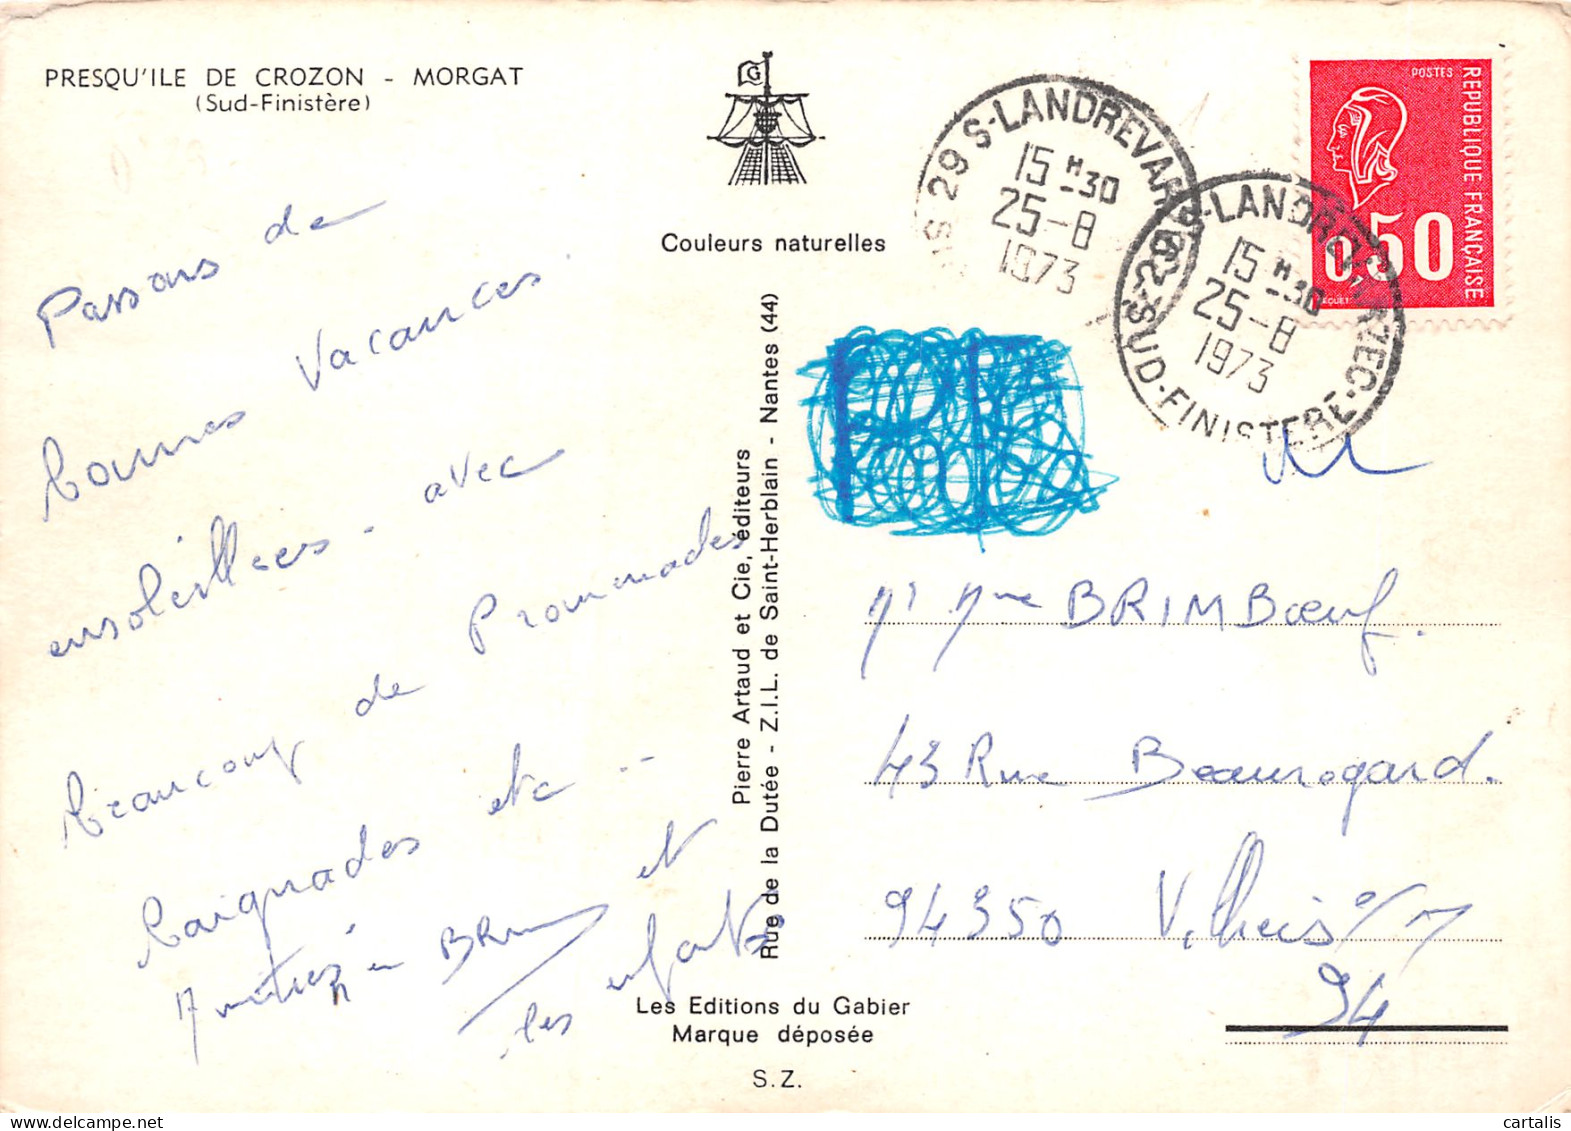 PRESQU'ILE DE CROZON - MORGAT
(Sud-Finistère)
G
Couleurs naturelles
29 S-LANDREVAR
15 H -30
25-8
1973
S-LANDREVARZEC
29 SUD-FINISTERE
15 H -30
25-8
1973
POSTES
REPUBLIQUE FRANÇAISE
0,50
Passons de
bonnes Vacances.
ensoleillées - avec
beaucoup de Promenades
baignades etc --
Amitiés
et
les enfants
Pierre Artaud et Cie, éditeurs
Rue de la Dutée - Z.I.L. de Saint-Herblain - Nantes (44)
Mr Mme BRIMBœuf.
43 Rue Beauregard.
94350 Villiers s/m
94
Les Editions du Gabier
Marque déposée
S.Z.
cartalis
delcampe.net